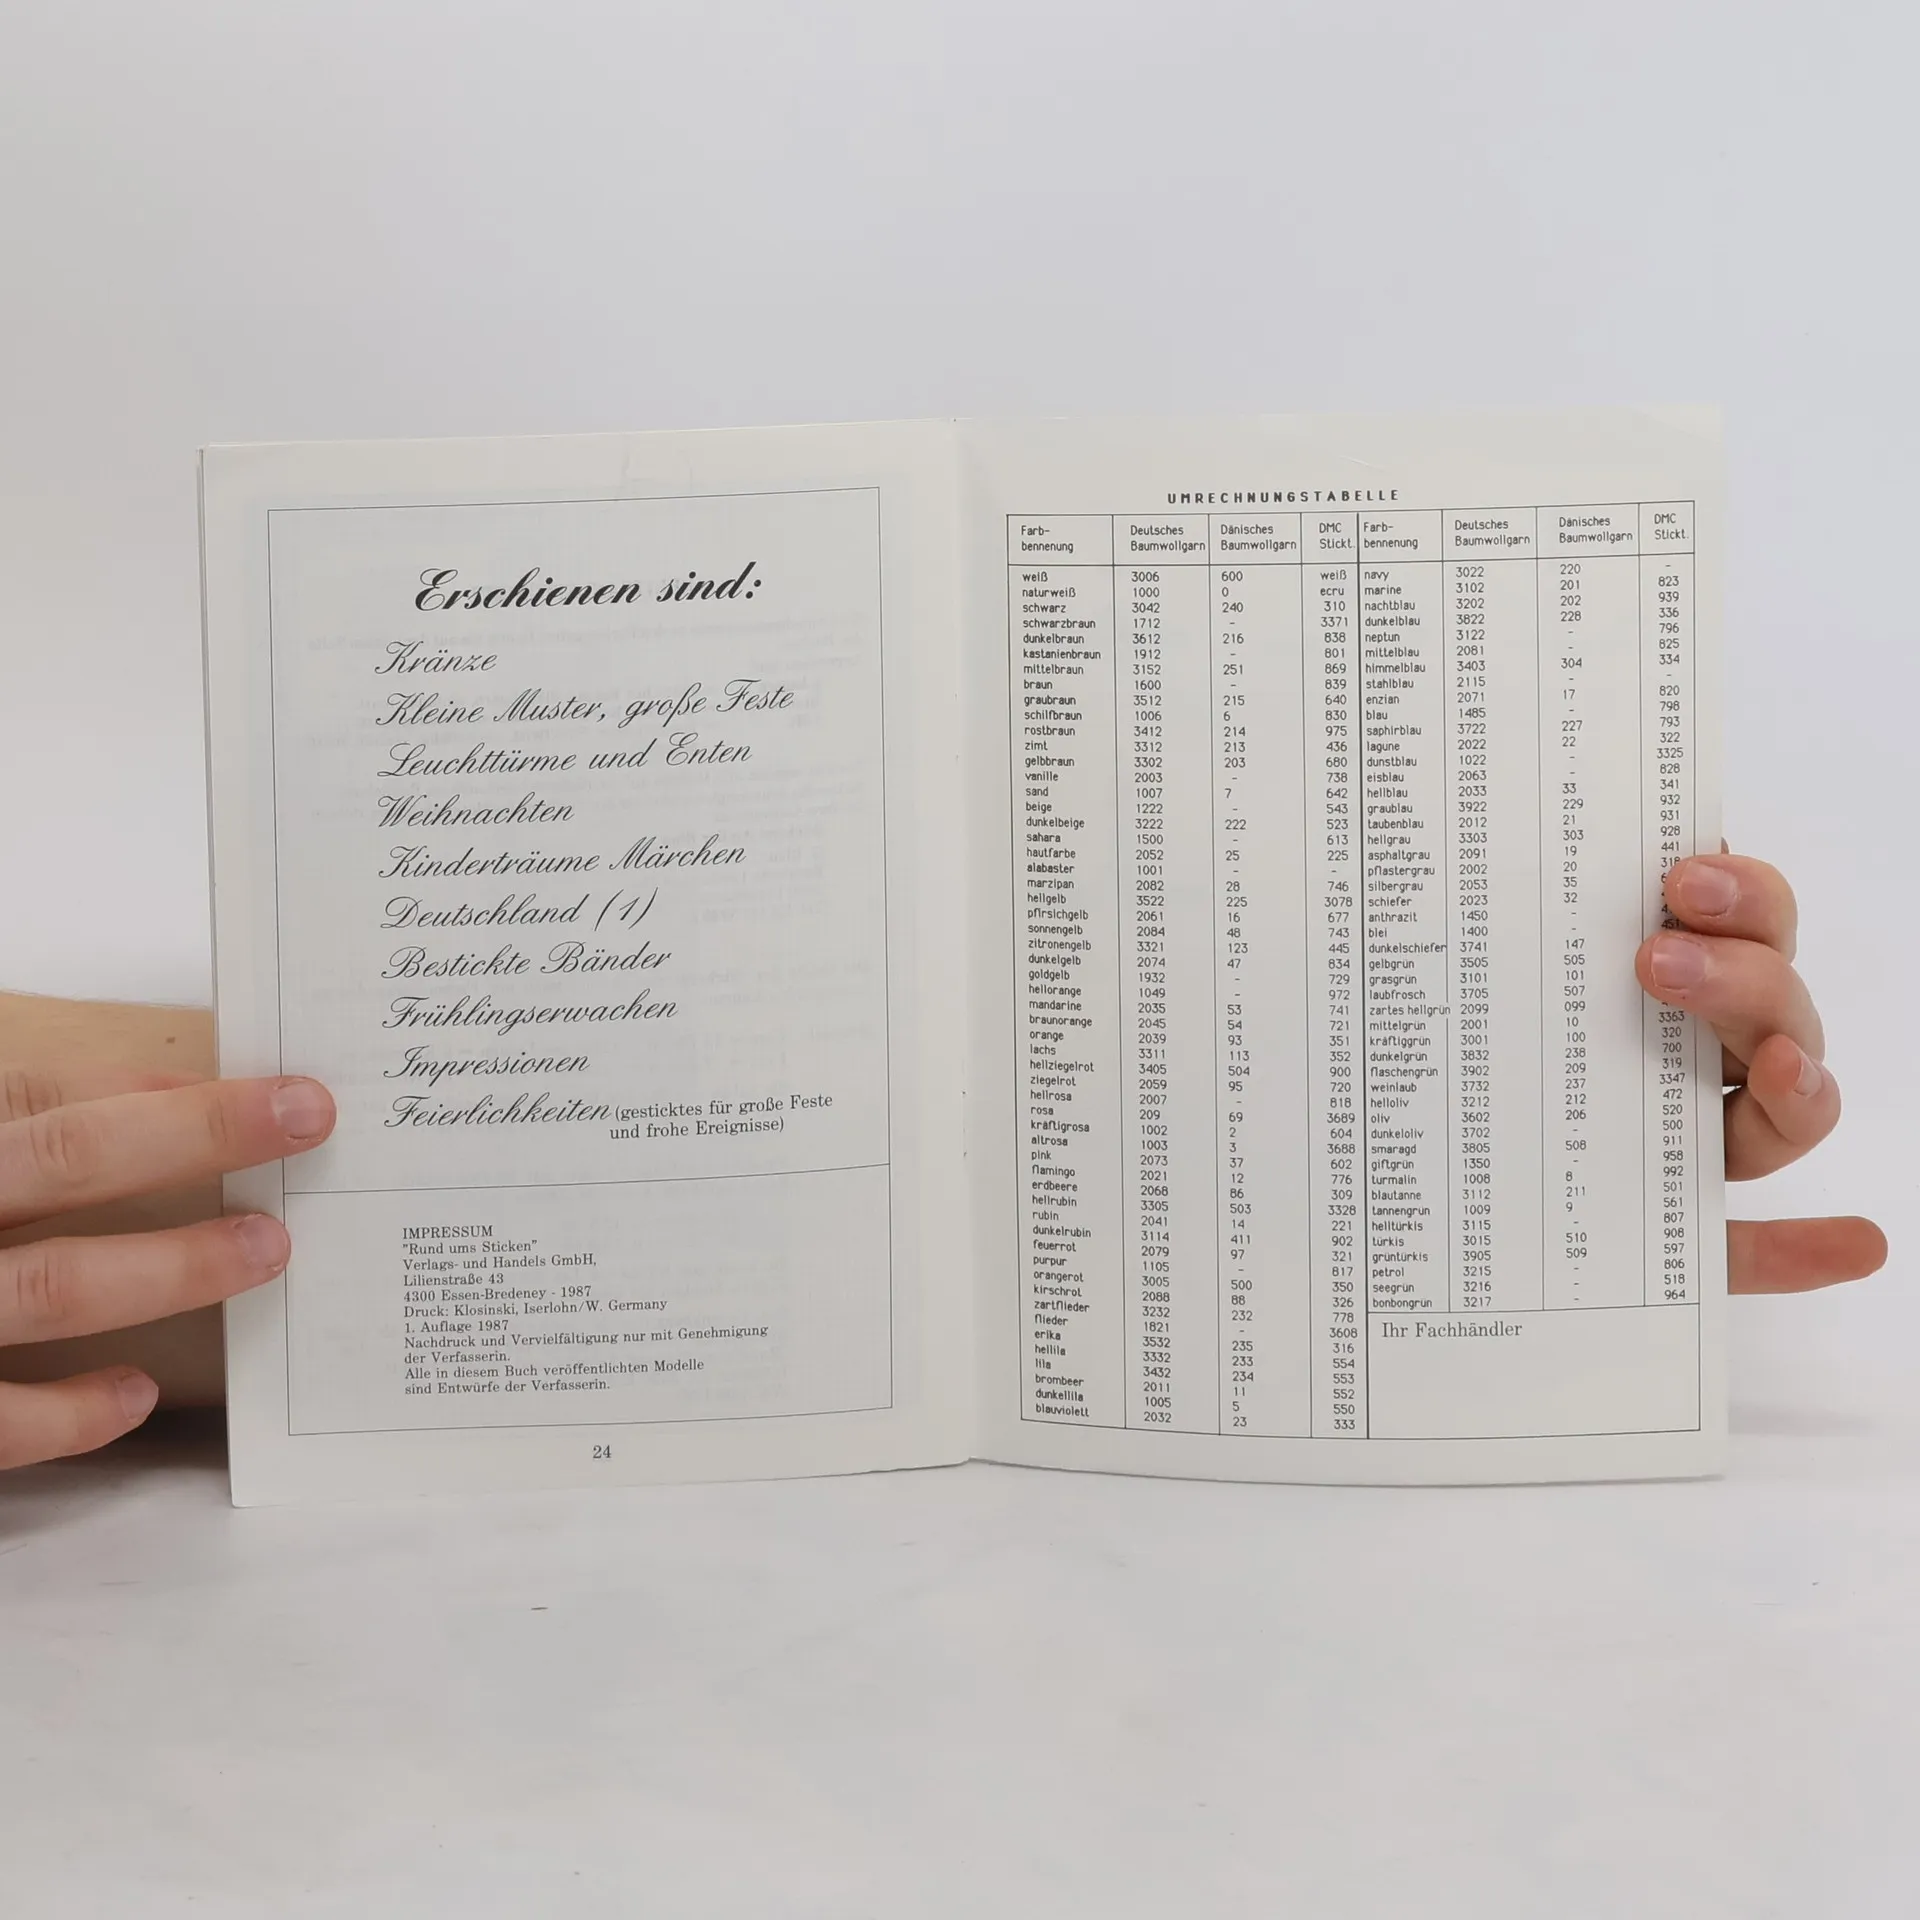 Erschienen sind:
Kränze
Kleine Muster, große Feste
Leuchttürme und Enten
Weihnachten
Kinderträume Märchen
Deutschland (1)
Bestickte Bänder
Frühlingserwachen
Impressionen
Feierlichkeiten (gesticktes für große Feste
und frohe Ereignisse)
IMPRESSUM
"Rund ums Sticken"
Verlags- und Handels GmbH,
Lilienstraße 43
4300 Essen-Bredeney - 1987
Druck: Klosinski, Iserlohn/W. Germany
1. Auflage 1987
Nachdruck und Vervielfältigung nur mit Genehmigung
der Verfasserin.
Alle in diesem Buch veröffentlichten Modelle
sind Entwürfe der Verfasserin.
24
UMRECHNUNGSTABELLE
Farb- Deutsches Dänisches DMC
bennenung Baumwollgarn Baumwollgarn Stickt.
weiß 3006 600 weiß
naturweiß 1000 0 ecru
schwarz 3042 240 310
schwarzbraun 1712 - 3371
dunkelbraun 3612 216 838
kastanienbraun 1912 - 801
mittelbraun 3152 251 869
braun 1600 - 839
graubraun 3512 215 640
schilfbraun 1006 6 830
rostbraun 3412 214 975
zimt 3312 213 436
gelbbraun 3302 203 680
vanille 2003 - 738
sand 1007 7 642
beige 1222 - 543
dunkelbeige 3222 222 523
sahara 1500 - 613
hautfarbe 2052 25 225
alabaster 1001 - -
marzipan 2082 28 746
hellgelb 3522 225 3078
pfirsichgelb 2061 16 677
sonnengelb 2084 48 743
zitronengelb 3321 123 445
dunkelgelb 2074 47 834
goldgelb 1932 - 729
hellorange 1049 - 972
mandarine 2035 53 741
braunorange 2045 54 721
orange 2039 93 351
lachs 3311 113 352
hellziegelrot 3405 504 900
ziegelrot 2059 95 720
hellrosa 2007 - 818
rosa 209 69 3689
kräftigrosa 1002 2 604
altrosa 1003 3 3688
pink 2073 37 602
flamingo 2021 12 776
erdbeere 2068 86 309
hellrubin 3305 503 3328
rubin 2041 14 221
dunkelrubin 3114 411 902
feuerrot 2079 97 321
purpur 1105 - 817
orangerot 3005 500 350
kirschrot 2088 88 326
zartflieder 3232 232 778
flieder 1821 - 3608
erika 3532 235 316
hellila 3332 233 554
lila 3432 234 553
brombeer 2011 11 552
dunkellila 1005 5 550
blauviolett 2032 23 333
Farb- Deutsches Dänisches DMC
bennenung Baumwollgarn Baumwollgarn Stickt.
navy 3022 220 -
marine 3102 201 823
nachtblau 3202 202 939
dunkelblau 3822 228 336
neptun 3122 - 796
mittelblau 2081 - 825
himmelblau 3403 304 334
stahlblau 2115 - -
enzian 2071 17 820
blau 1485 - 798
saphirblau 3722 227 793
lagune 2022 22 322
dunstblau 1022 - 3325
eisblau 2063 - 828
hellblau 2033 33 341
graublau 3922 229 932
taubenblau 2012 21 931
hellgrau 3303 303 928
asphaltgrau 2091 19 441
pflastergrau 2002 20 318
silbergrau 2053 35
schiefer 2023 32
anthrazit 1450 -
blei 1400 - 451
dunkelschiefer 3741 147
gelbgrün 3505 505
grasgrün 3101 101
laubfrosch 3705 507
zartes hellgrün 2099 099
mittelgrün 2001 10 3363
kräftiggrün 3001 100 320
dunkelgrün 3832 238 700
flaschengrün 3902 209 319
weinlaub 3732 237 3347
helloliv 3212 212 472
oliv 3602 206 520
dunkeloliv 3702 - 500
smaragd 3805 508 911
giftgrün 1350 - 958
turmalin 1008 8 992
blautanne 3112 211 501
tannengrün 1009 9 561
helltürkis 3115 - 807
türkis 3015 510 908
grüntürkis 3905 509 597
petrol 3215 - 806
seegrün 3216 - 518
bonbongrün 3217 - 964
Ihr Fachhändler